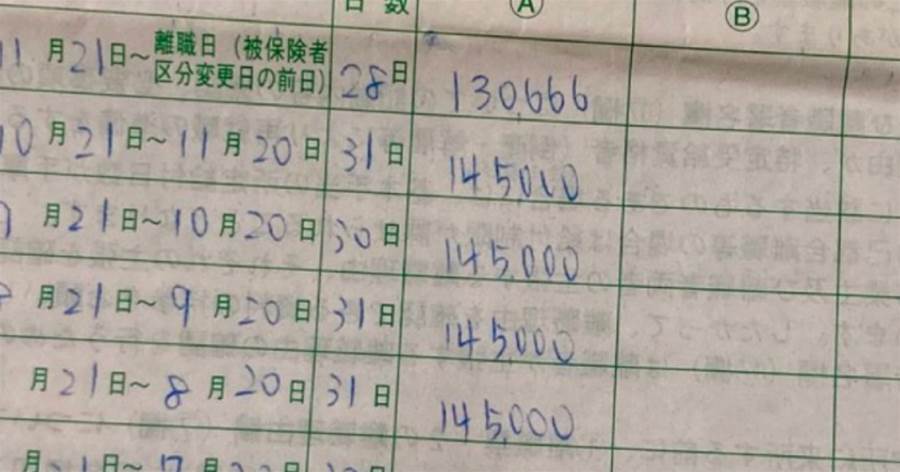 日 数 Ⓐ Ⓑ
11 月 21日～ 離職日（被保険者
区分変更日の前日） 28日 130,666
10 月 21 日～ 11 月 20 日 31日 145,000
月 21 日～ 10 月 20 日 30日 145,000
月 21 日～ 9 月 20 日 31日 145,000
月 21 日～ 8 月 20 日 31日 145,000